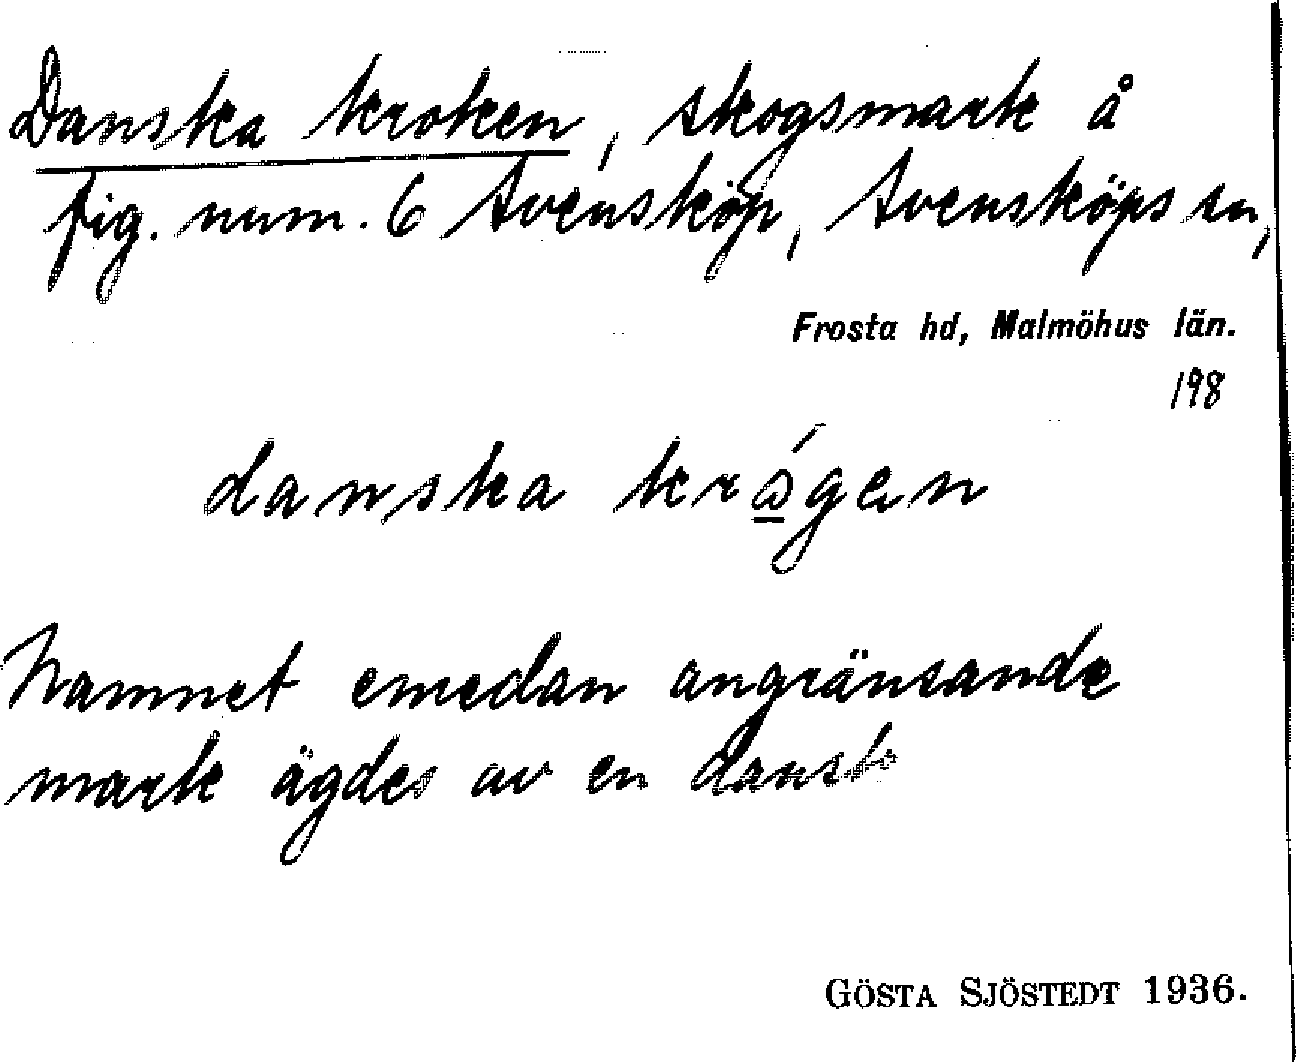 Danska kroken, skogsmark å
fig. num. 6 Svensköp, Svensköps sn,
Frosta hd, Malmöhus län.
198
danska krågen
Namnet emedan angränsande
mark ägdes av en dansk
GÖSTA SJÖSTEDT 1936.